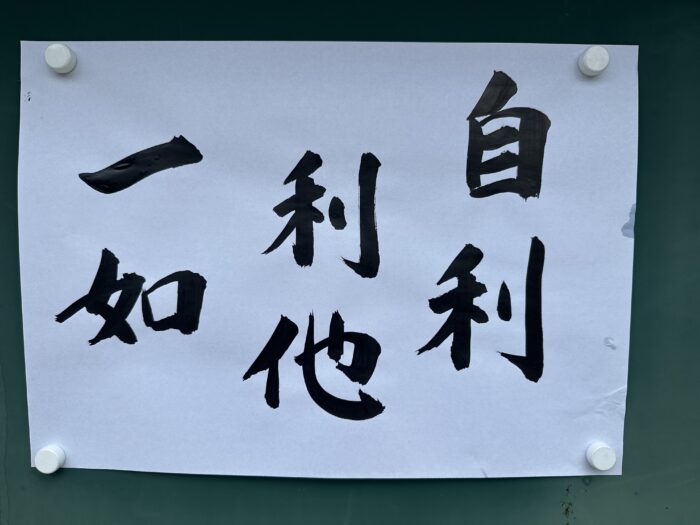 自利
利他
一如